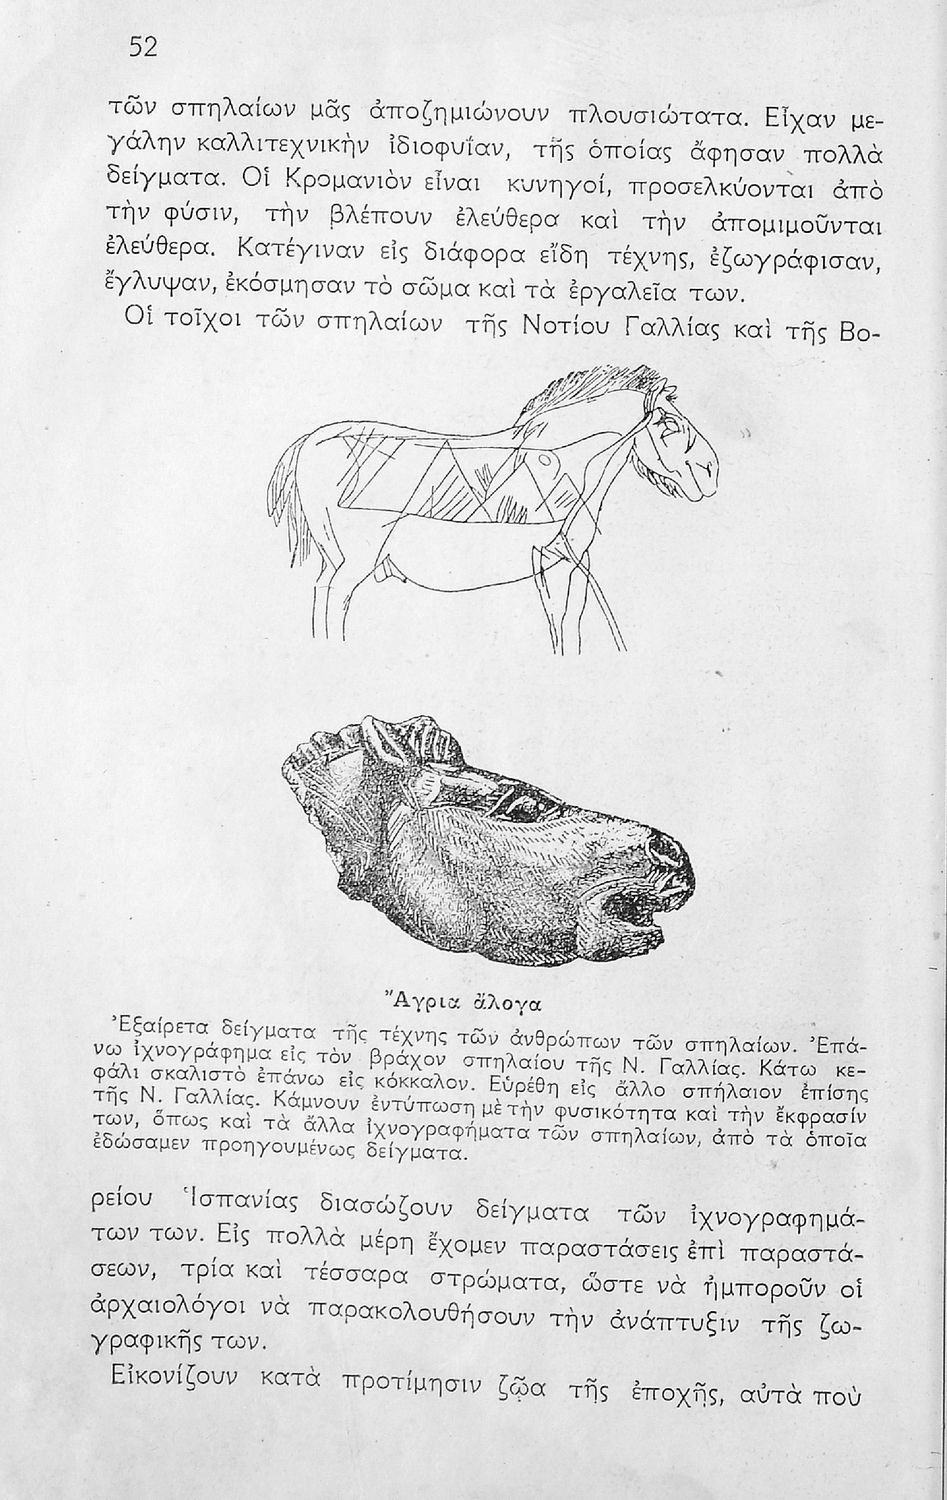 52
τῶν σπηλαίων μᾶς ἀποζημιώνουν πλουσιώτατα. Εἶχαν με-
γάλην καλλιτεχνικὴν ἰδιοφυΐαν, τῆς ὁποίας ἄφησαν πολλὰ
δείγματα. Οἱ Κρομανιὸν εἶναι κυνηγοί, προσελκύονται ἀπὸ
τὴν φύσιν, τὴν βλέπουν ἐλεύθερα καὶ τὴν ἀπομιμοῦνται
ἐλεύθερα. Κατέγιναν εἰς διάφορα εἴδη τέχνης, ἐζωγράφισαν,
ἔγλυψαν, ἐκόσμησαν τὸ σῶμα καὶ τὰ ἐργαλεῖα των.
Οἱ τοῖχοι τῶν σπηλαίων τῆς Νοτίου Γαλλίας καὶ τῆς Βο-
Ἄγρια ἄλογα
Ἐξαίρετα δείγματα τῆς τέχνης τῶν ἀνθρώπων τῶν σπηλαίων. Ἐπά-
νω ἰχνογράφημα εἰς τὸν βράχον σπηλαίου τῆς Ν. Γαλλίας. Κάτω κε-
φάλι σκαλιστὸ ἐπάνω εἰς κόκκαλον. Εὑρέθη εἰς ἄλλο σπήλαιον ἐπίσης
τῆς Ν. Γαλλίας. Κάμνουν ἐντύπωση μὲ τὴν φυσικότητα καὶ τὴν ἔκφρασίν
των, ὅπως καὶ τὰ ἄλλα ἰχνογραφήματα τῶν σπηλαίων, ἀπὸ τὰ ὁποῖα
ἐδώσαμεν προηγουμένως δείγματα.
ρείου Ἱσπανίας διασώζουν δείγματα τῶν ἰχνογραφημά-
των των. Εἰς πολλὰ μέρη ἔχομεν παραστάσεις ἐπὶ παραστά-
σεων, τρία καὶ τέσσαρα στρώματα, ὥστε νὰ ἠμποροῦν οἱ
ἀρχαιολόγοι νὰ παρακολουθήσουν τὴν ἀνάπτυξιν τῆς ζω-
γραφικῆς των.
Εἰκονίζουν κατὰ προτίμησιν ζῷα τῆς ἐποχῆς, αὐτὰ ποὺ